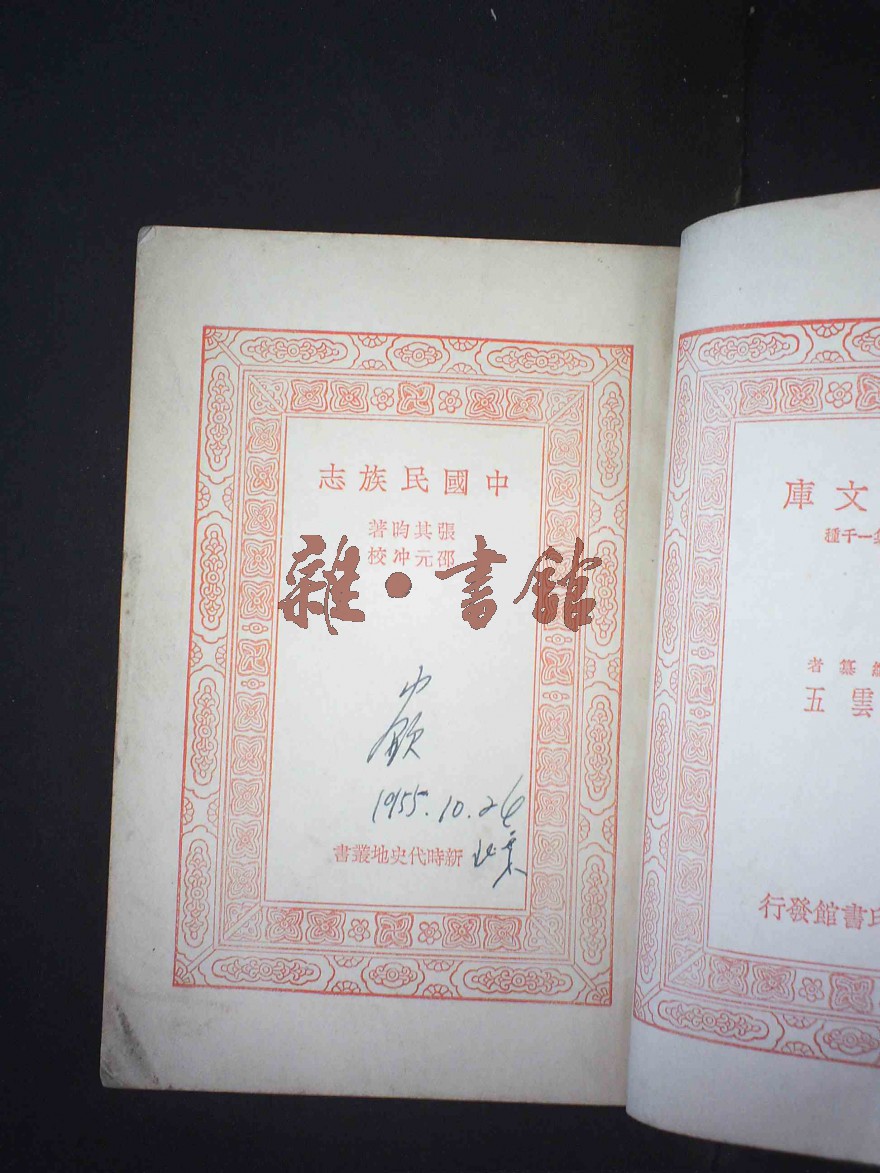 中國民族志
張其昀著
邵元冲校
雜·書館
1955.10.26
新時代史地叢書
文庫
一千種
纂者
雲五
書館發行